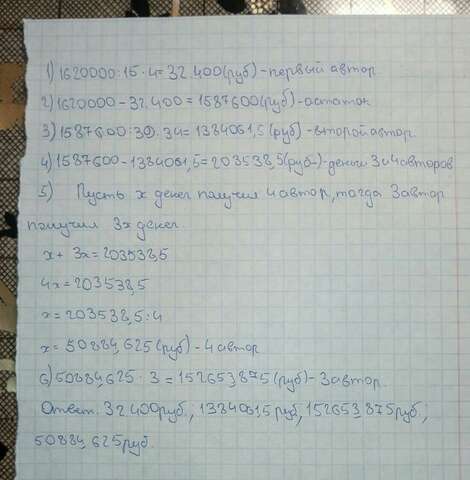 1) 1620000:15·4=32 400(руб)-первый автор
2) 1620000-32.400=1587600(руб)-остаток
3) 1587600:39.34=1384061,5(руб)-второй автор
4) 1587600-1384061,5=203538,5(руб)-деньги 3и4авторов
5) Пусть x денег получил 4автор, тогда 3автор
получил 3x денег.
x+3x=203538,5
4x=203538,5
x=203538,5:4
x=50884,625(руб)-4автор
6)50884,625:3=152653,875(руб)-3автор.
Ответ. 32400руб., 1384061,5руб, 152653,875руб;
50884,625руб.